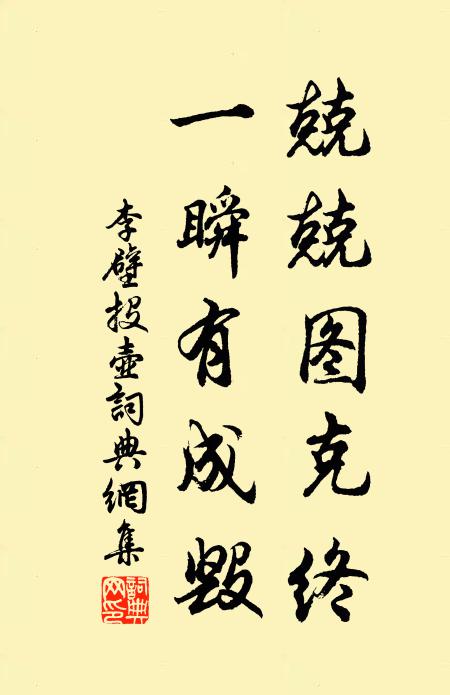 兢兢图克终
一瞬有成毁
李壁投壶詞典網集
詞典網印